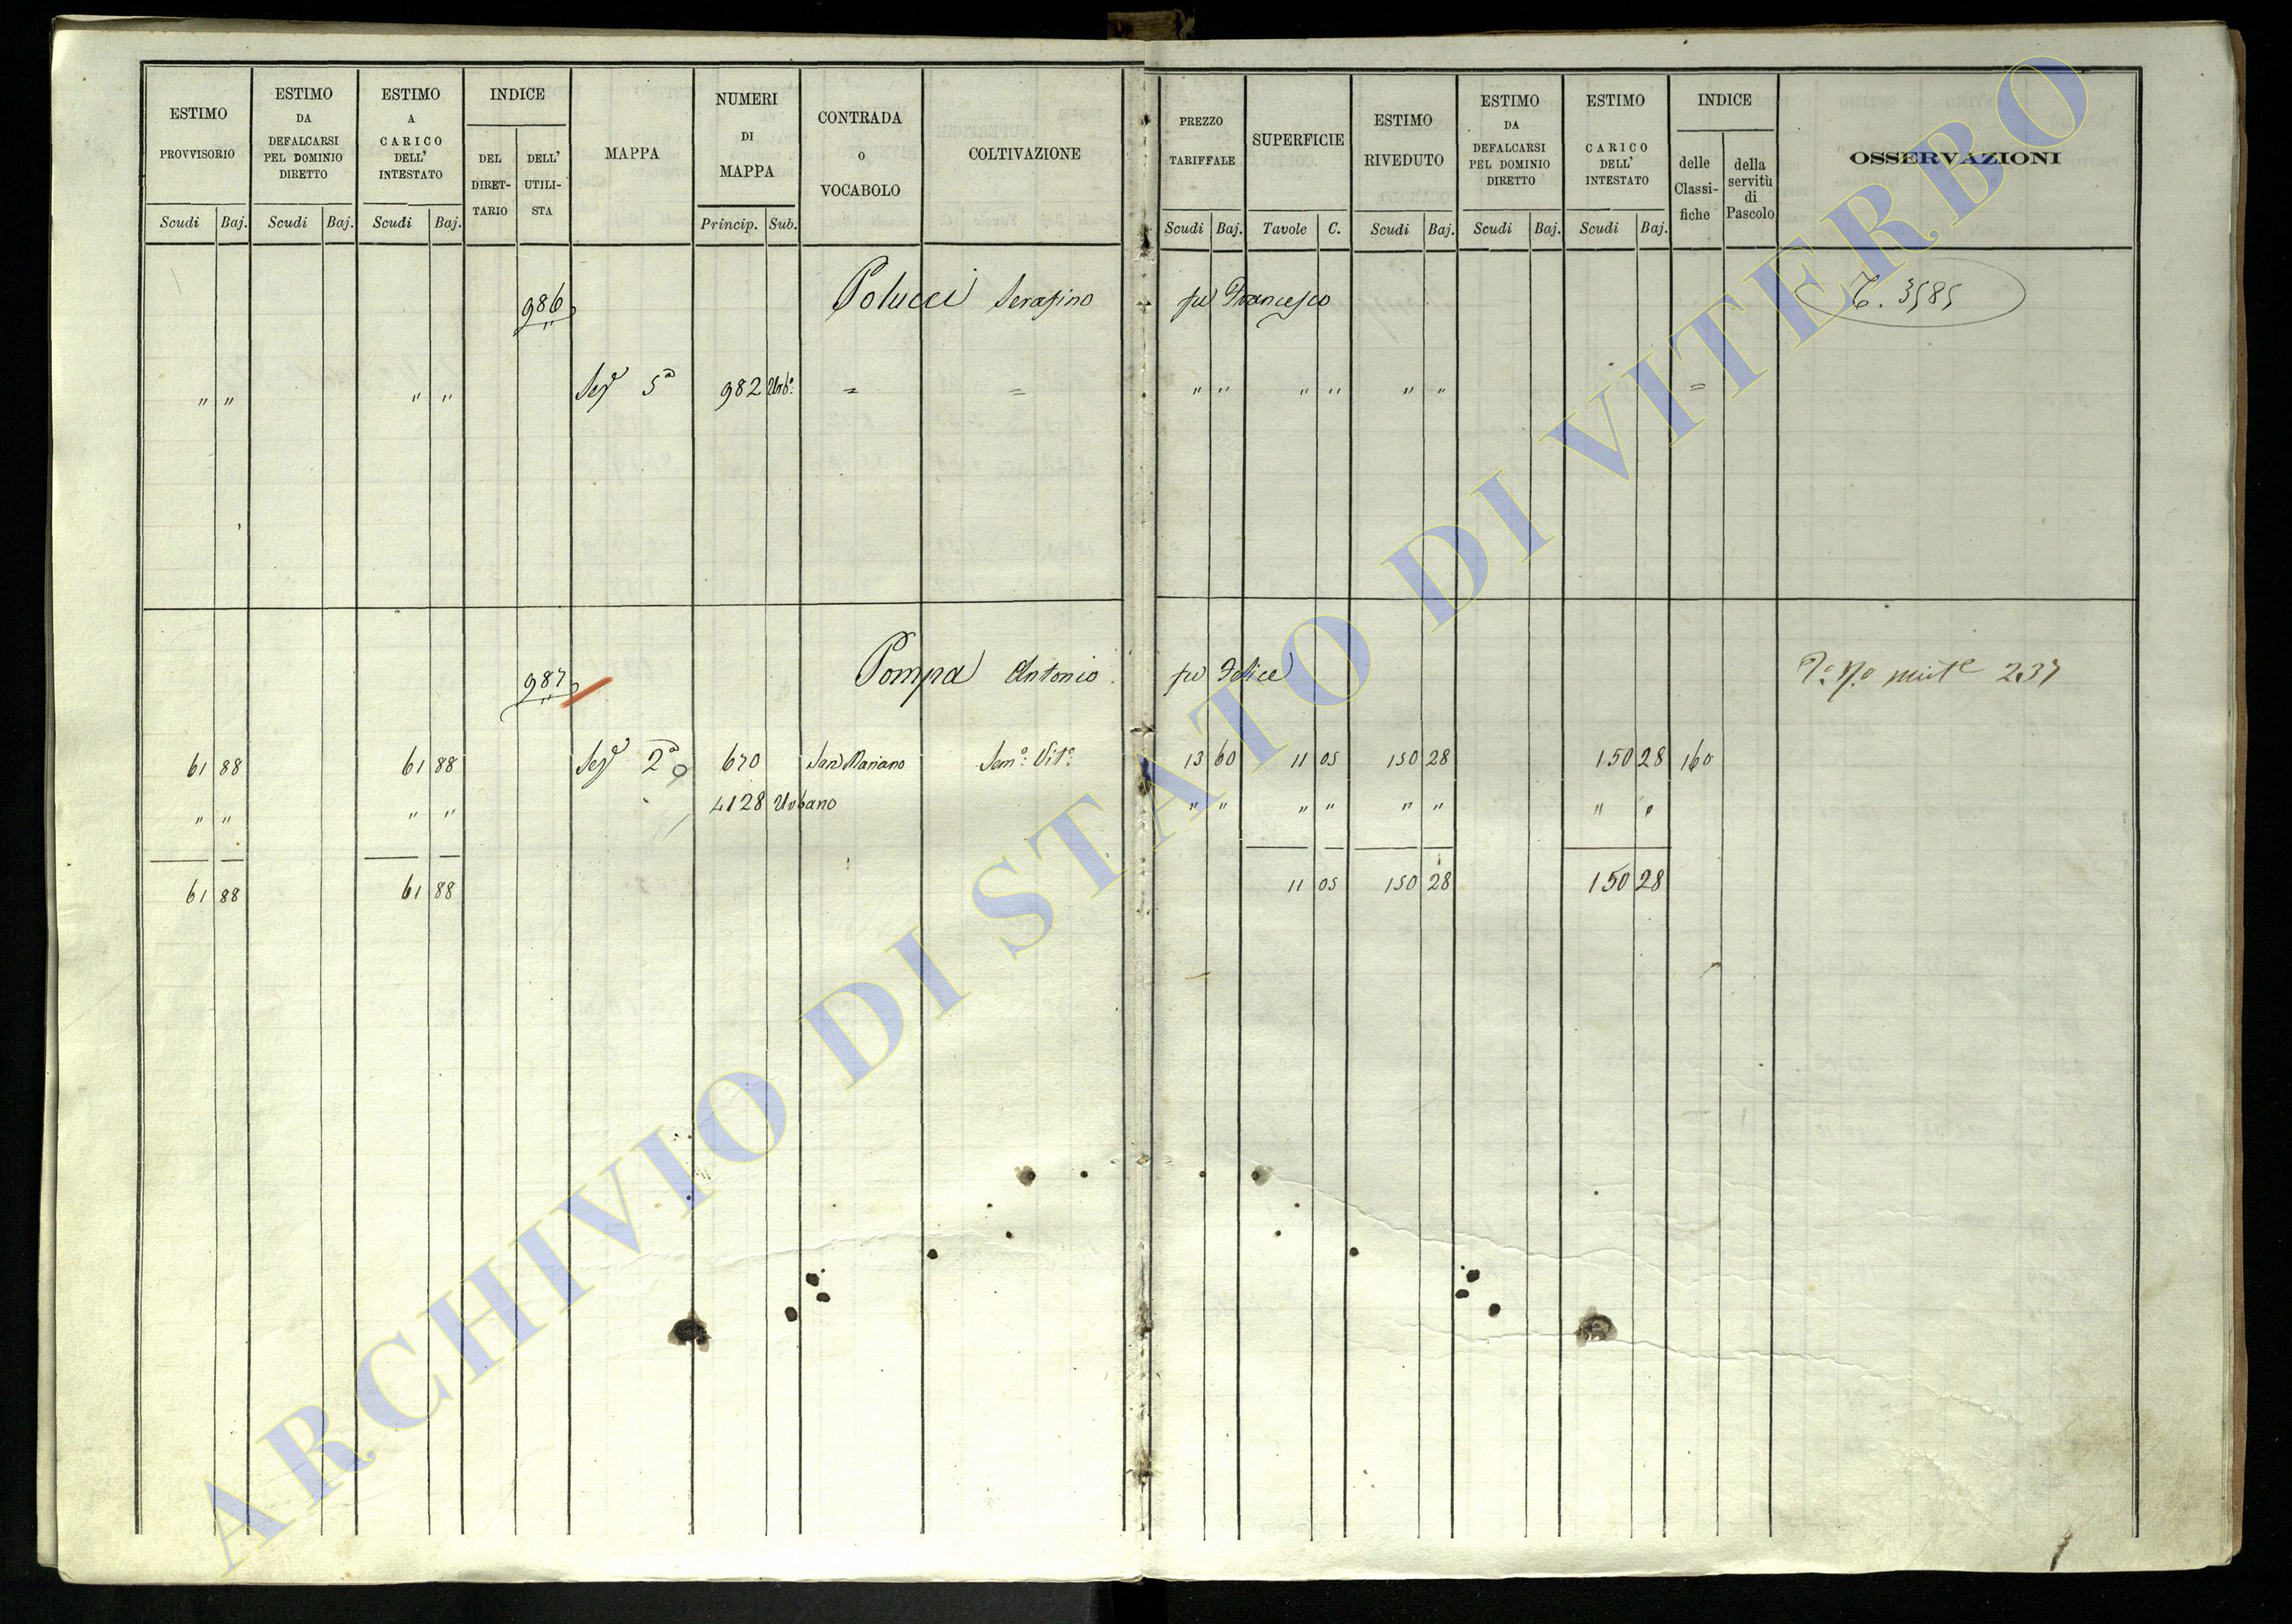 ESTIMO PROVVISORIO Scudi Baj.
ESTIMO DA DEFALCARSI PEL DOMINIO DIRETTO Scudi Baj.
ESTIMO A CARICO DELL' INTESTATO Scudi Baj.
INDICE DEL DIRET-TARIO DELL' UTILI-STA
MAPPA
NUMERI DI MAPPA Princip. Sub.
CONTRADA O VOCABOLO
COLTIVAZIONE
PREZZO TARIFFALE Scudi Baj.
SUPERFICIE Tavole C.
ESTIMO RIVEDUTO Scudi Baj.
ESTIMO DA DEFALCARSI PEL DOMINIO DIRETTO Scudi Baj.
ESTIMO A CARICO DELL' INTESTATO Scudi Baj.
INDICE delle Classi-fiche della servitù di Pascolo
OSSERVAZIONI
986 Polucci Serafino fu Francesco 3585
" " " " Sez.e 5a 982 Urb.o = = " " " " " " =
987 Pompa Antonio fu Felice 237
61 88 61 88 Sez.e 2a 670 San Mariano Sem.o Vit.o 13 60 11 05 150 28 150 28 160
" " " " 4128 Urbano " " " " " " " "
61 88 61 88 11 05 150 28 150 28
ARCHIVIO DI STATO DI VITERBO